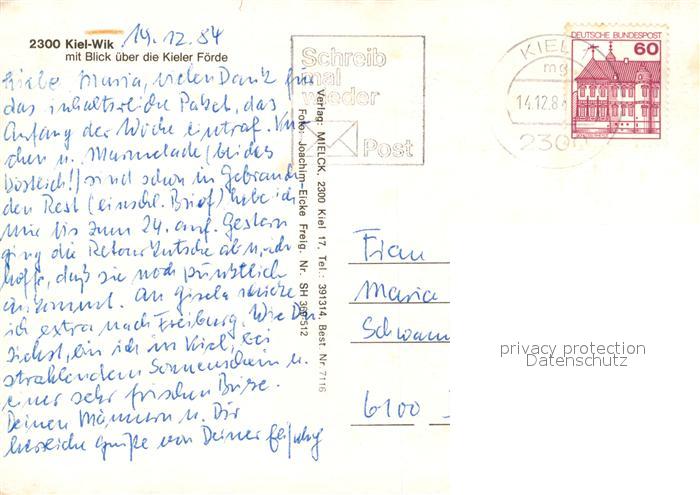 2300 Kiel-Wik 14.12.84
mit Blick über die Kieler Förde
Liebe Maria, vielen Dank für
das inhaltsreiche Paket, das
Anfang der Woche eintraf. Ku-
chen u. Marmelade (beides
köstlich!) sind schon in Gebrauch
den Rest (einschl. Brief) hebe ich
mir bis zum 24. auf. Gestern
ging die Retourkutsche ab u. ich
hoffe, daß sie noch pünktlich
ankommt. An Gisela schicke
ich extra nach Freiburg. Wie Du
siehst, bin ich in Kiel, bei
strahlendem Sonnenschein u.
einer sehr frischen Brise.
Deinen Männern u. Dir
herzliche Grüße von Deiner
Verlag: MIELCK, 2300 Kiel 17, Tel.: 391314, Best. Nr. 7116
Foto: Joachim-Eicke Freig. Nr. SH 360/512
Schreib
mal
wieder
Post
KIEL
mg
14.12.84
2300
DEUTSCHE BUNDESPOST
60
Frau
Maria
Schwan
6100
privacy protection
Datenschutz